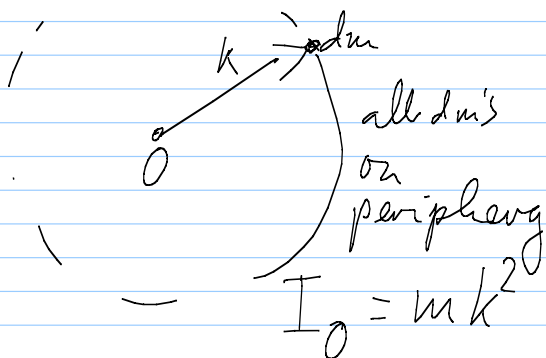 k
dm
O
all dm's
on
periphery
I_O = mk²